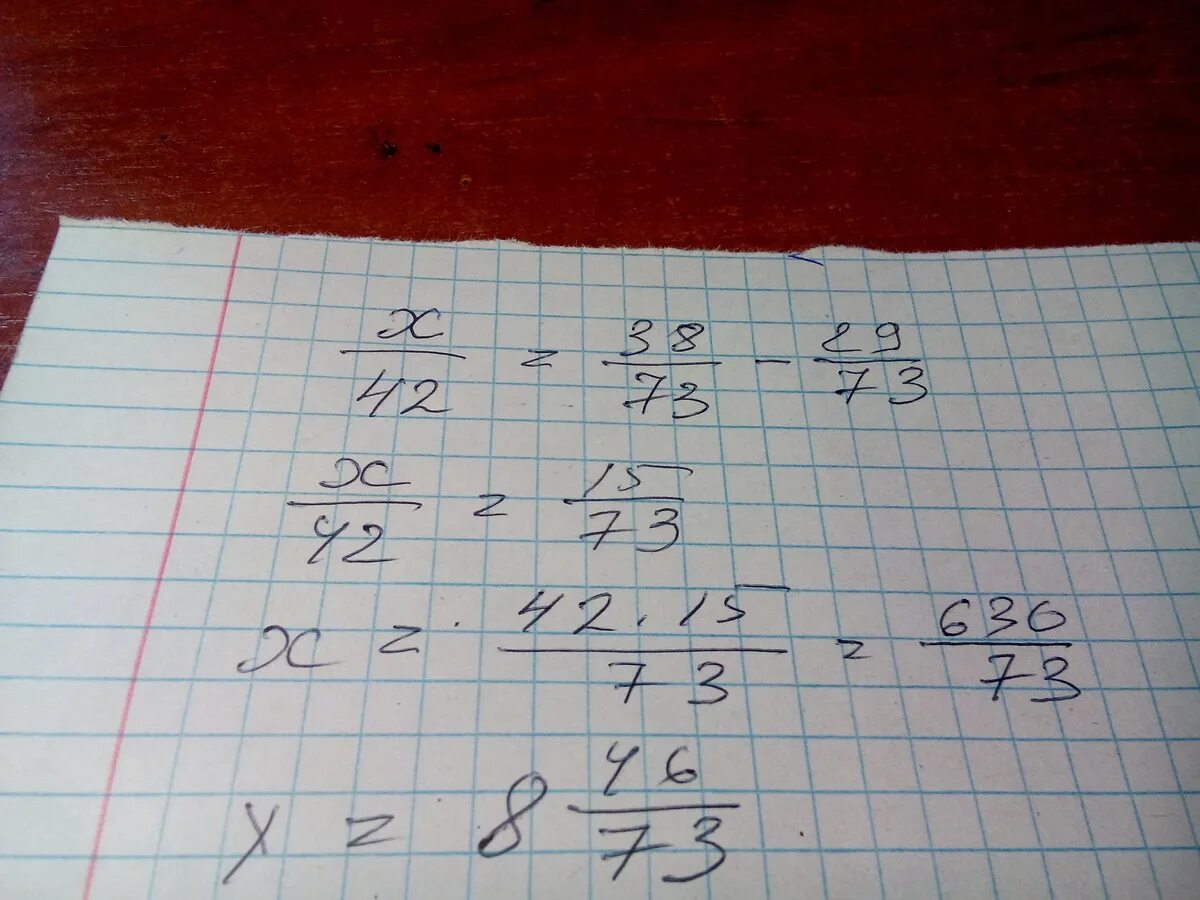 x/42 = 38/73 - 29/73
x/42 = 15/73
x = 42 · 15/73 = 630/73
x = 8 46/73